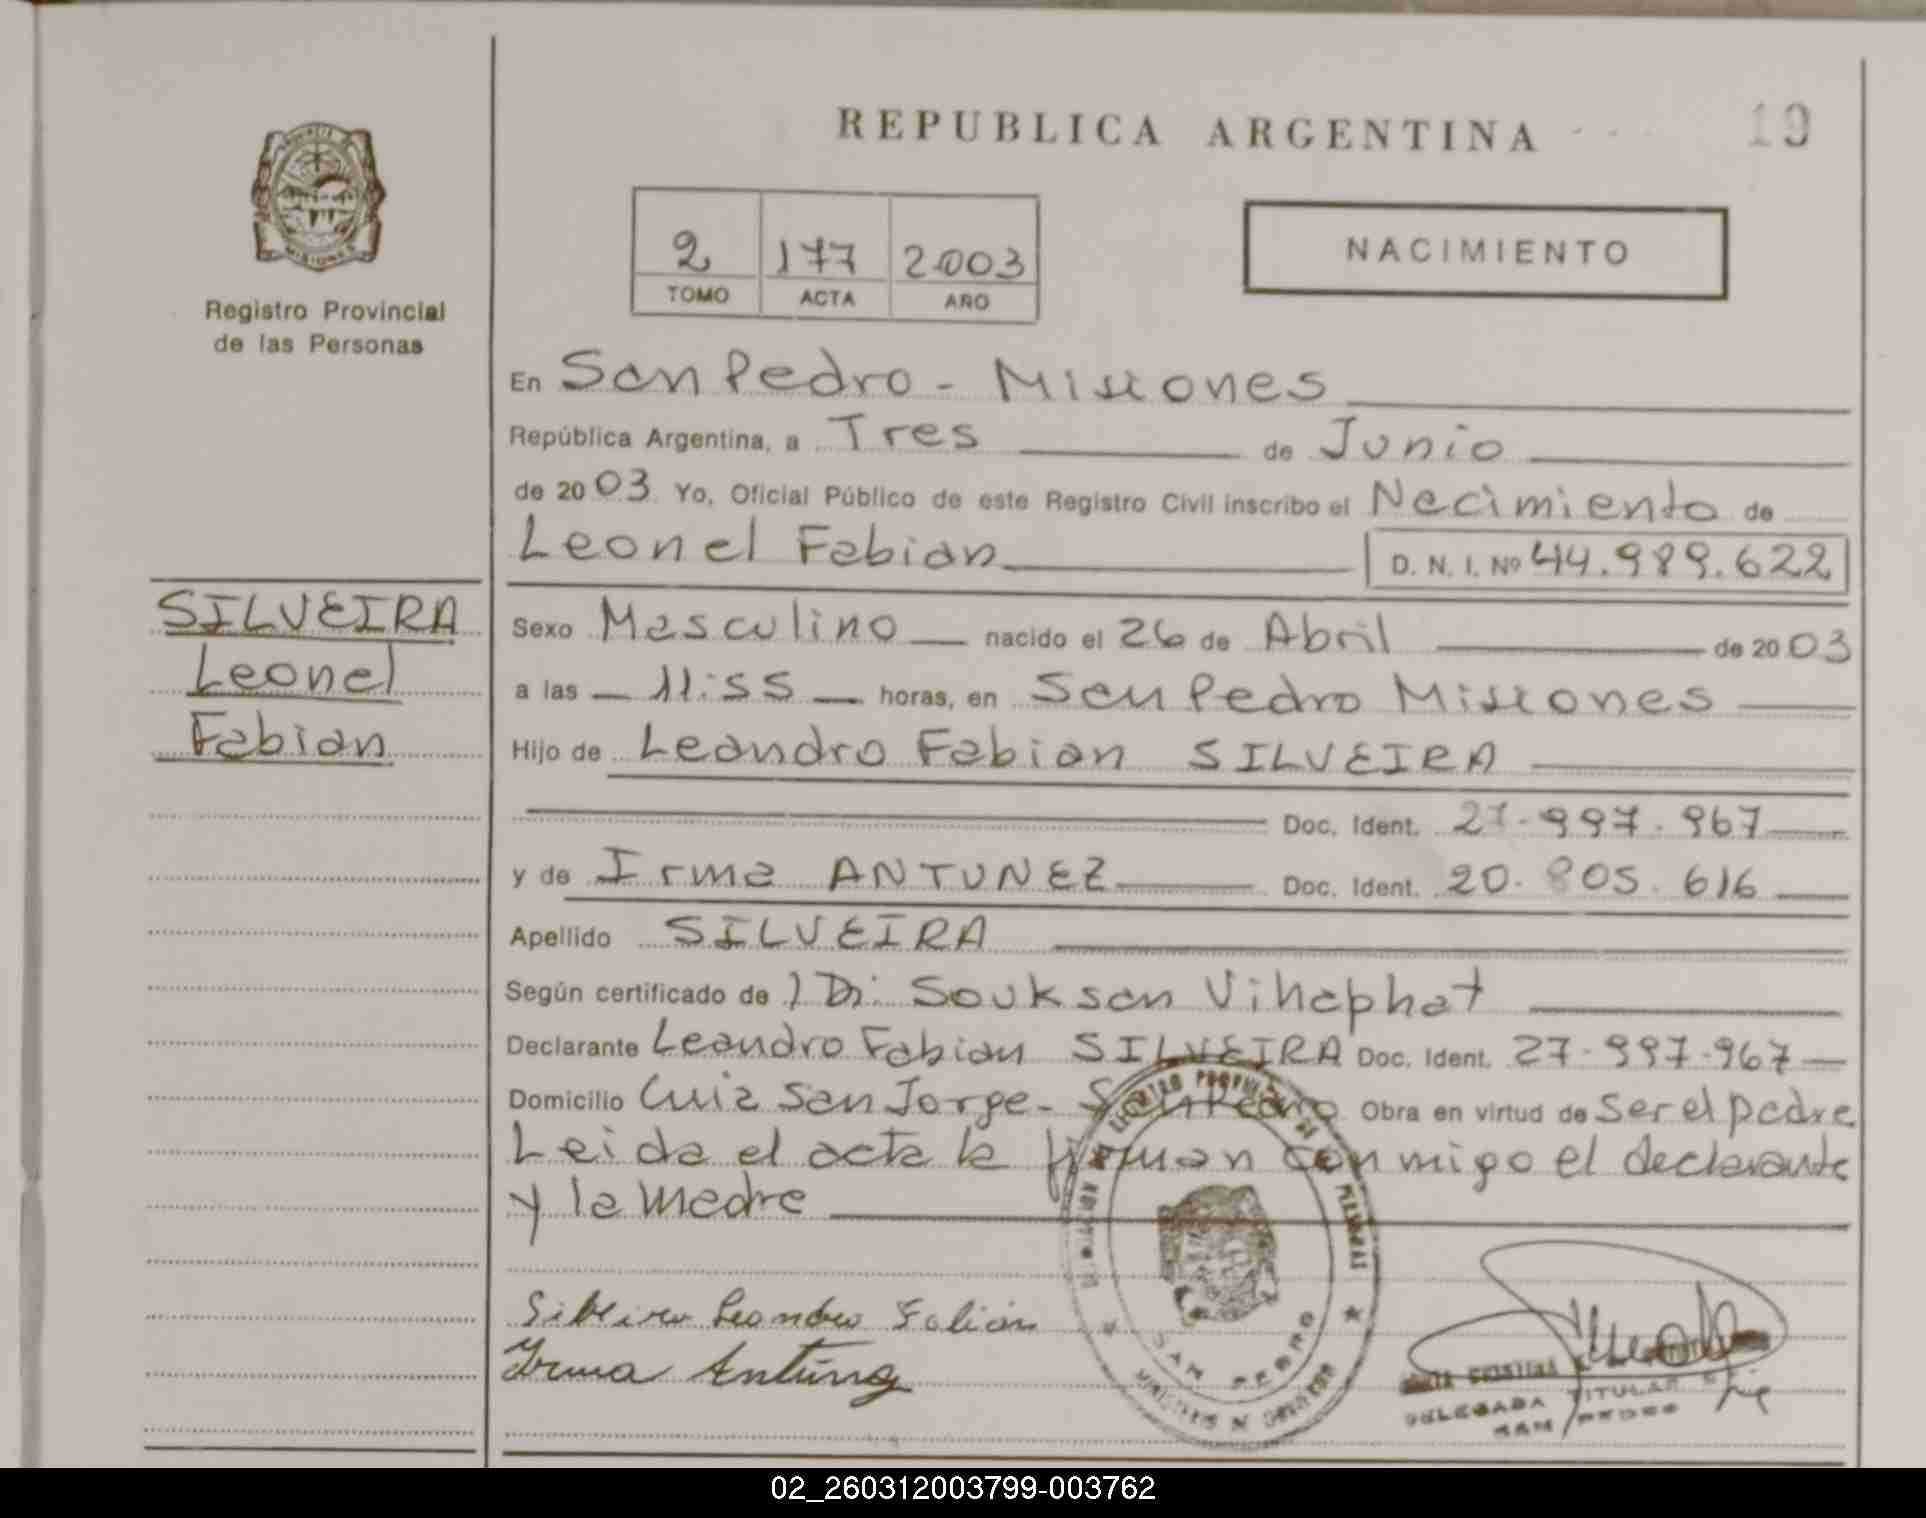 REPUBLICA ARGENTINA
19
MISIONES
Registro Provincial
de las Personas
2 177 2003
TOMO ACTA AÑO
NACIMIENTO
En San Pedro - Misiones
República Argentina, a Tres de Junio
de 2003 Yo, Oficial Público de este Registro Civil inscribo el Nacimiento de
Leonel Fabian
D. N. I. Nº 44.989.622
SILVEIRA
Leonel
Fabian
Sexo Masculino nacido el 26 de Abril de 2003
a las 11:55 horas, en San Pedro Misiones
Hijo de Leandro Fabian SILVEIRA
Doc. Ident. 27.997.967
y de Irma ANTUNEZ Doc. Ident. 20.805.616
Apellido SILVEIRA
Según certificado de Dr. Souksan Vihaphat
Declarante Leandro Fabian SILVEIRA Doc. Ident. 27.997.967
Domicilio San Jorge - San Pedro Obra en virtud de ser el padre
Leida el acta la firman conmigo el declarante
y la madre
Silveira Leandro Fabián
Irma Antúnez
SAN PEDRO
DELEGADA TITULAR
SAN PEDRO
02_260312003799-003762